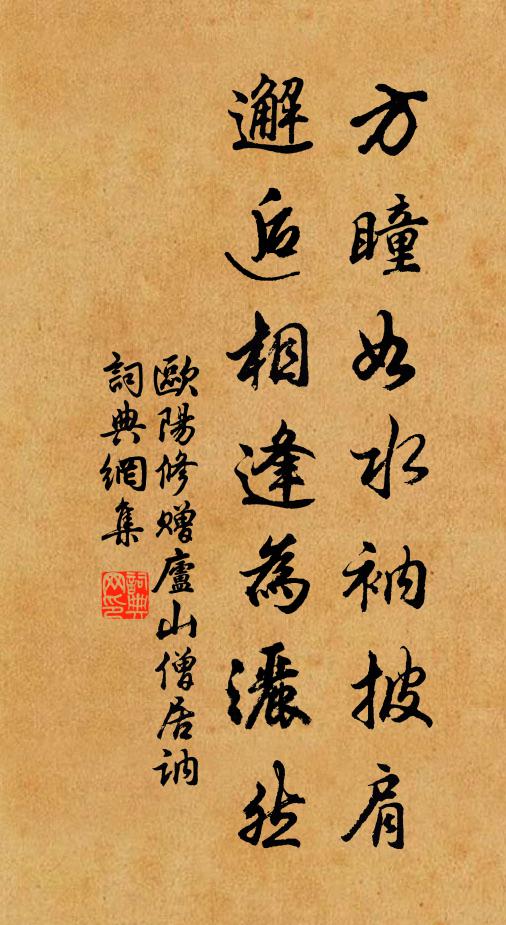 方瞳如水衲披肩
邂逅相逢為灑然
歐陽修贈廬山僧居訥
詞典網集
詞典
网印